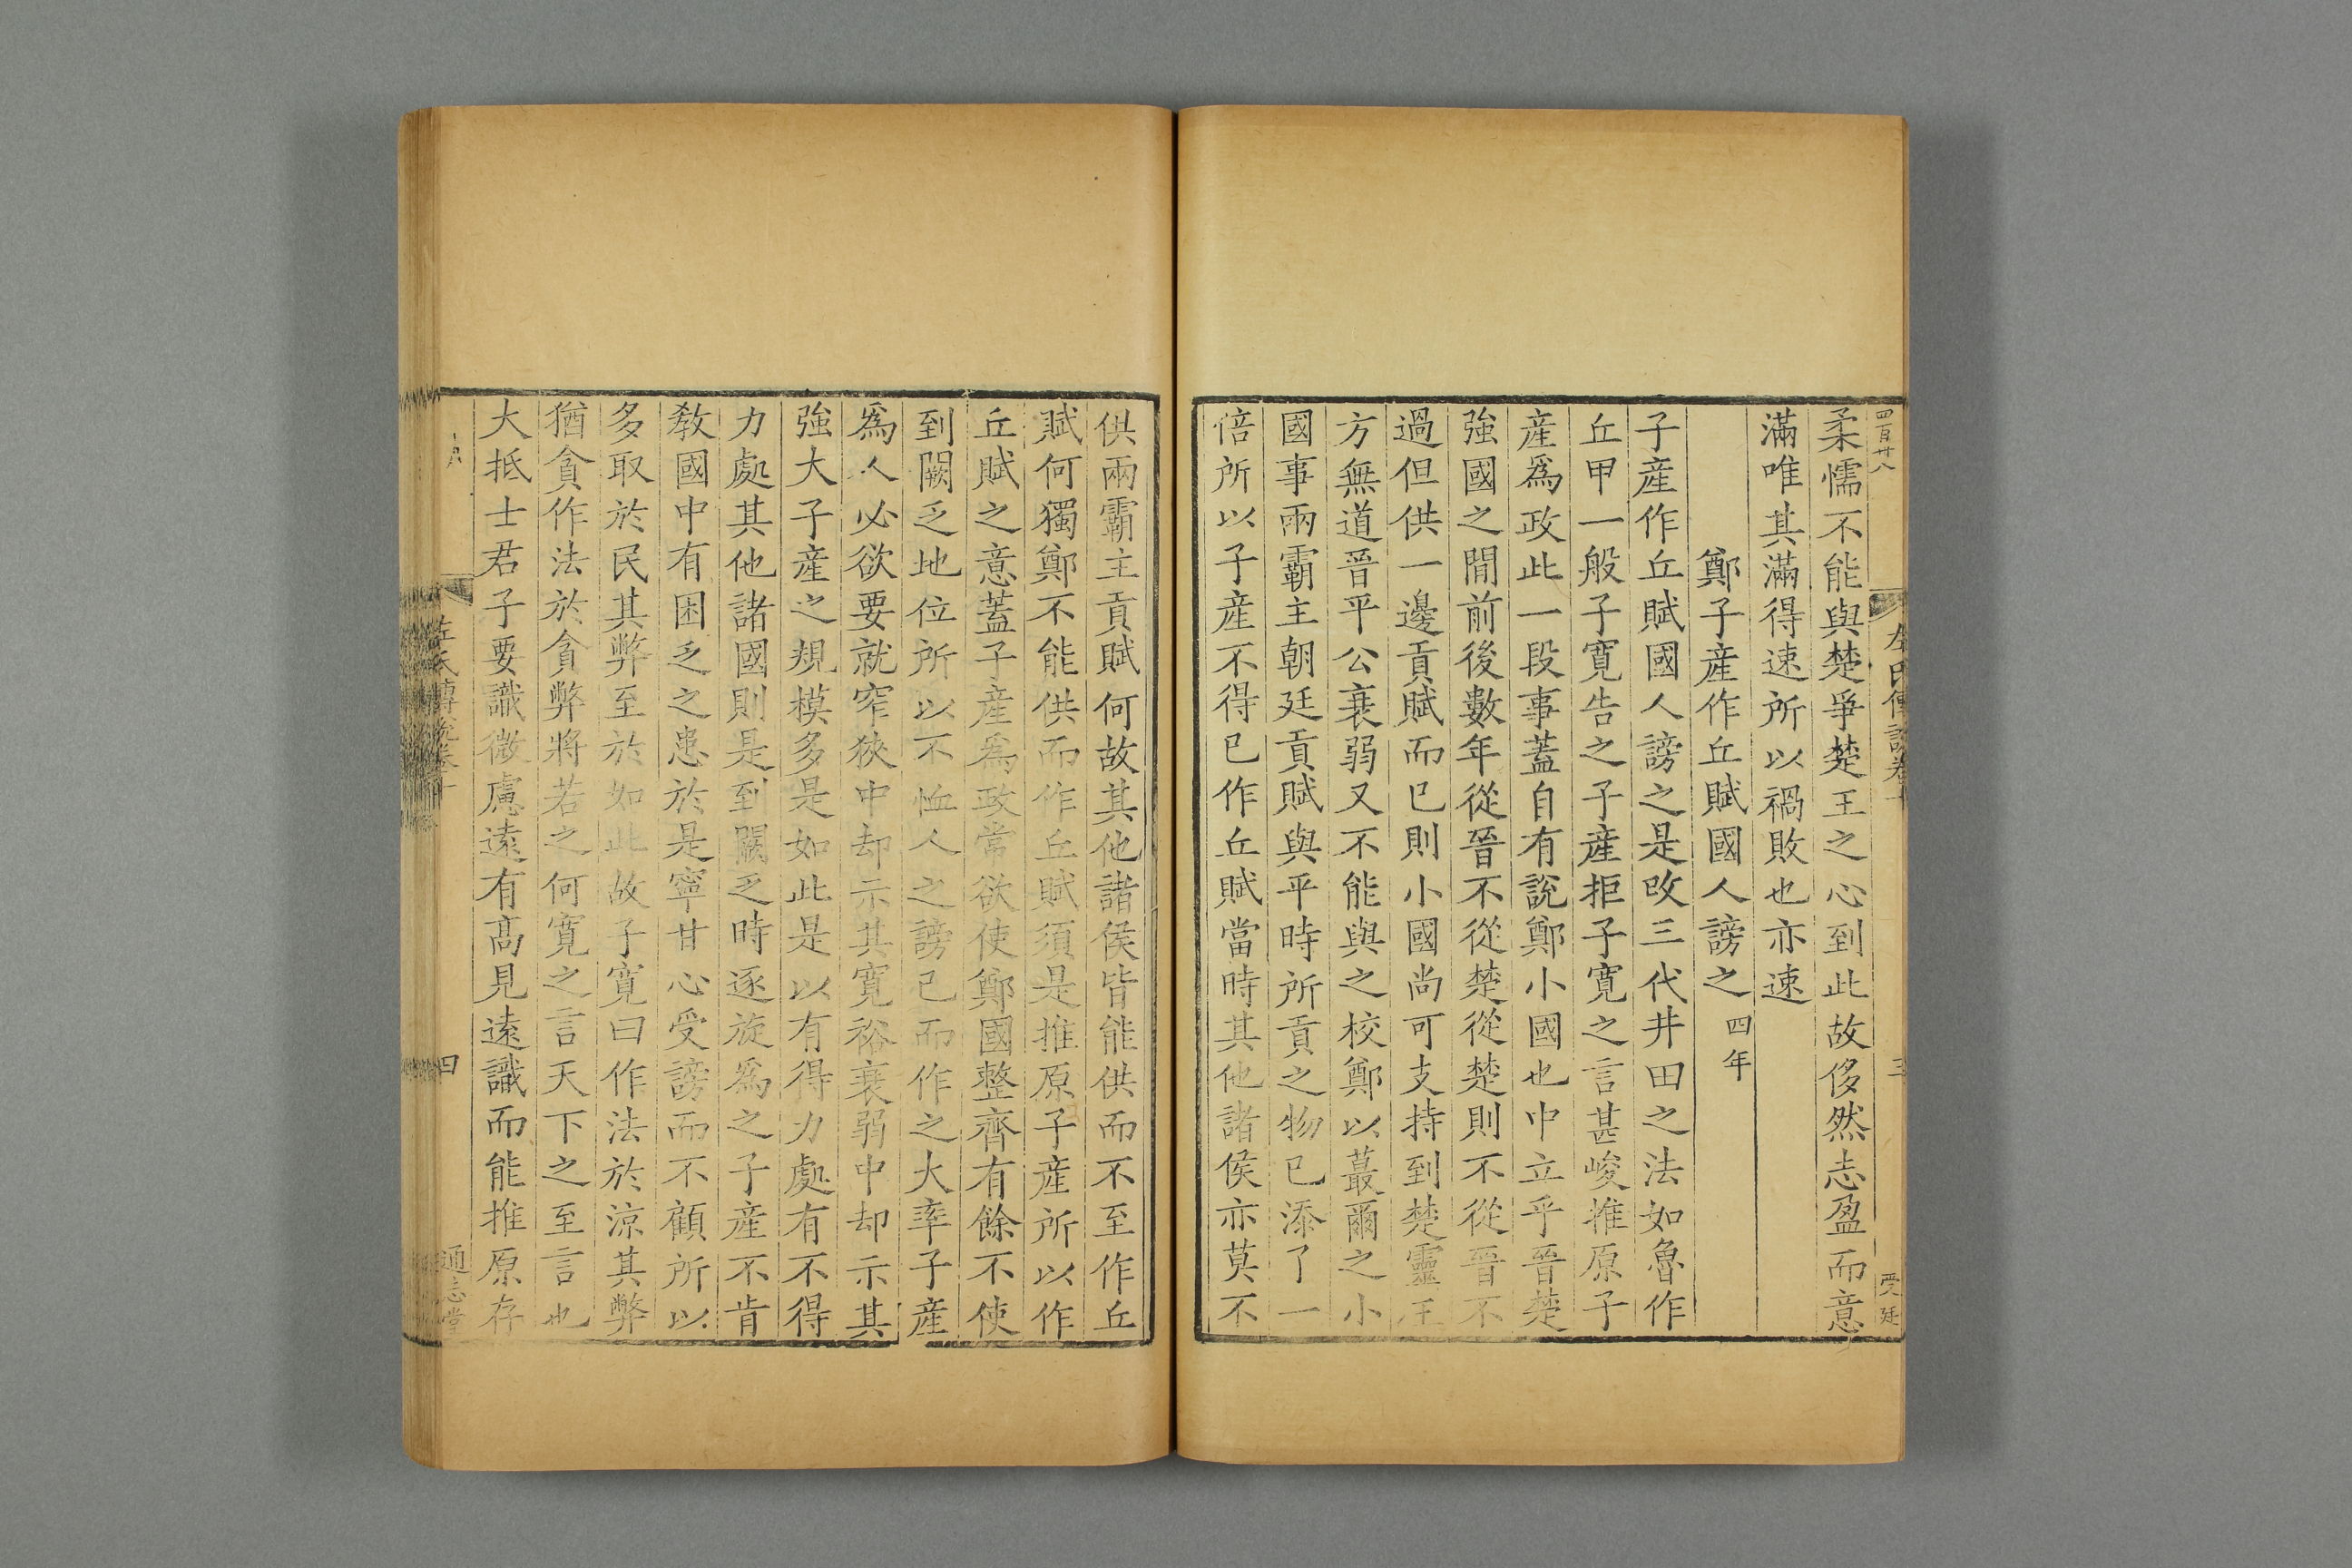 四百廿八
左氏傳說卷十
三
受廷
柔懦不能與楚爭楚王之心到此故侈然志盈而意
滿唯其滿得速所以禍敗也亦速
鄭子產作丘賦國人謗之四年
子產作丘賦國人謗之是改三代井田之法如魯作
丘甲一般子寬告之子產拒子寬之言甚峻推原子
產爲政此一段事蓋自有說鄭小國也中立乎晉楚
強國之間前後數年從晉不從楚從楚則不從晉不
過但供一邊貢賦而已則小國尚可支持到楚靈王
方無道晉平公衰弱又不能與之校鄭以蕞爾之小
國事兩霸主朝廷貢賦與平時所貢之物已添了一
倍所以子產不得已作丘賦當時其他諸侯亦莫不
供兩霸主貢賦何故其他諸侯皆能供而不至作丘
賦何獨鄭不能供而作丘賦須是推原子產所以作
丘賦之意蓋子產爲政常欲使鄭國整齊有餘不使
到闕乏地位所以不恤人之謗已而作之大率子產
爲人必欲要就窄狹中却示其寬裕衰弱中却示其
強大子產之規模多是如此是以有得力處有不得
力處其他諸國則是到闕乏時逐旋爲之子產不肯
教國中有困乏之患於是寧甘心受謗而不顧所以
多取於民其弊至於如此故子寬曰作法於涼其弊
猶貪作法於貪弊將若之何寬之言天下之至言也
大抵士君子要識微慮遠有高見遠識而能推原存
左氏傳說卷十
四
通志堂